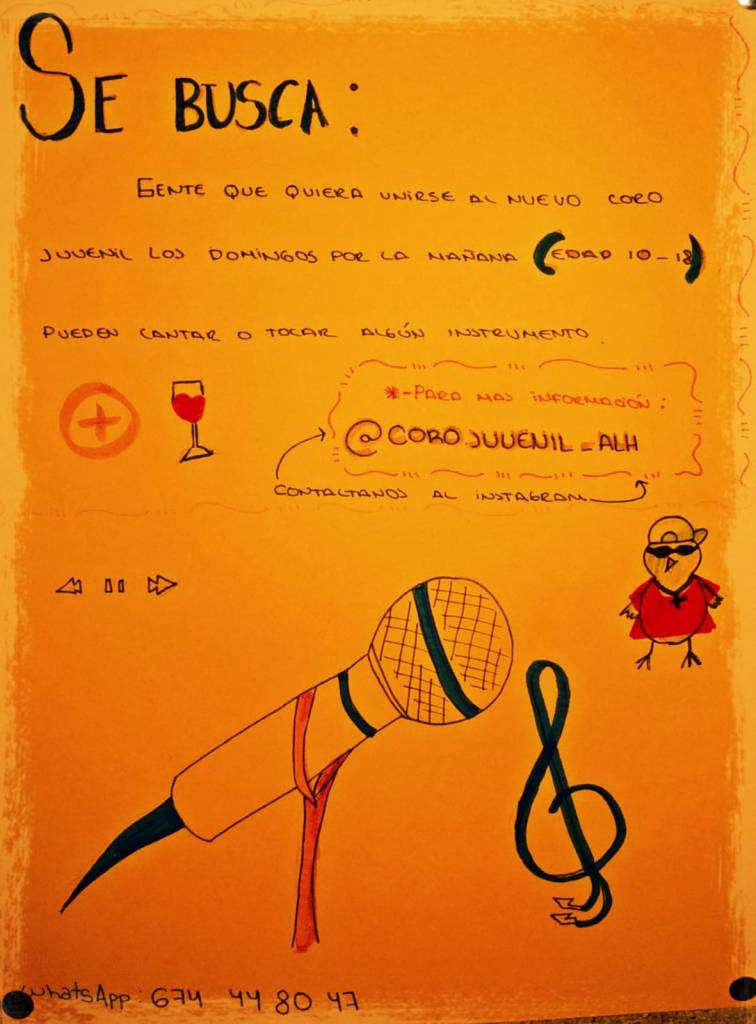 SE BUSCA:
GENTE QUE QUIERA UNIRSE AL NUEVO CORO
JUVENIL LOS DOMINGOS POR LA MAÑANA (EDAD 10-18)
PUEDEN CANTAR O TOCAR ALGÚN INSTRUMENTO.
*-PARA MAS INFORMACIÓN:
@CORO.JUVENIL_ALH
CONTACTANOS AL INSTAGRAM
WhatsApp: 674 44 80 47